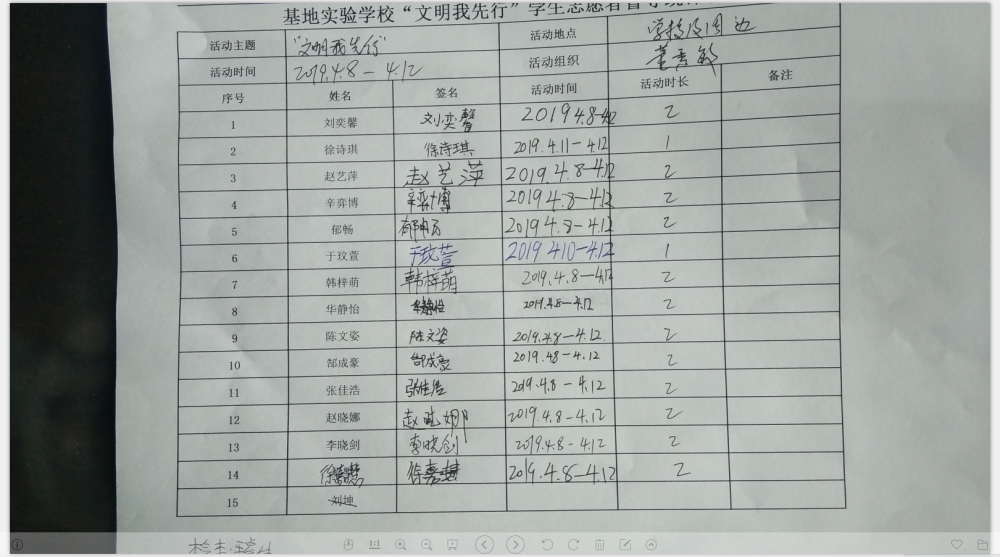 基地实验学校“文明我先行”学生志愿者
活动主题 “文明我先行” 活动地点 学校及周边
活动时间 2019.4.8-4.12 活动组织
序号 姓名 签名 活动时间 活动时长 备注
1 刘奕馨 刘奕馨 2019 4.8-4.12 2
2 徐诗琪 徐诗琪 2019.4.11-4.12 1
3 赵艺萍 赵艺萍 2019 4.8-4.12 2
4 辛弈博 辛弈博 2019 4.8-4.12 2
5 郁畅 郁畅 2019 4.8-4.12 2
6 于玟萱 于玟萱 2019 4.10-4.12 1
7 韩梓萌 韩梓萌 2019.4.8-4.12 2
8 华静怡 华静怡 2019.4.8-4.12 2
9 陈文姿 陈文姿 2019.4.8-4.12. 2
10 郜成豪 郜成豪 2019.4.8-4.12 2
11 张佳浩 张佳浩 2019.4.8-4.12 2
12 赵晓娜 赵晓娜 2019.4.8-4.12 2
13 李晓剑 李晓剑 2019.4.8-4.12 2
14 徐 徐嘉 2019.4.8-4.12 2
15 刘坤
1:1